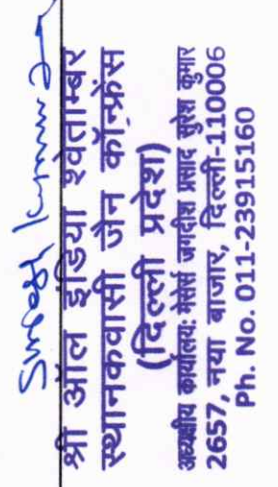 Suresh Kumar
श्री ऑल इंडिया श्वेताम्बर
स्थानकवासी जैन कॉन्फ्रेंस
(दिल्ली प्रदेश)
अध्यक्षीय कार्यालय: मैसर्स जगदीश प्रसाद सुरेश कुमार
2657, नया बाजार, दिल्ली-110006
Ph. No. 011-23915160